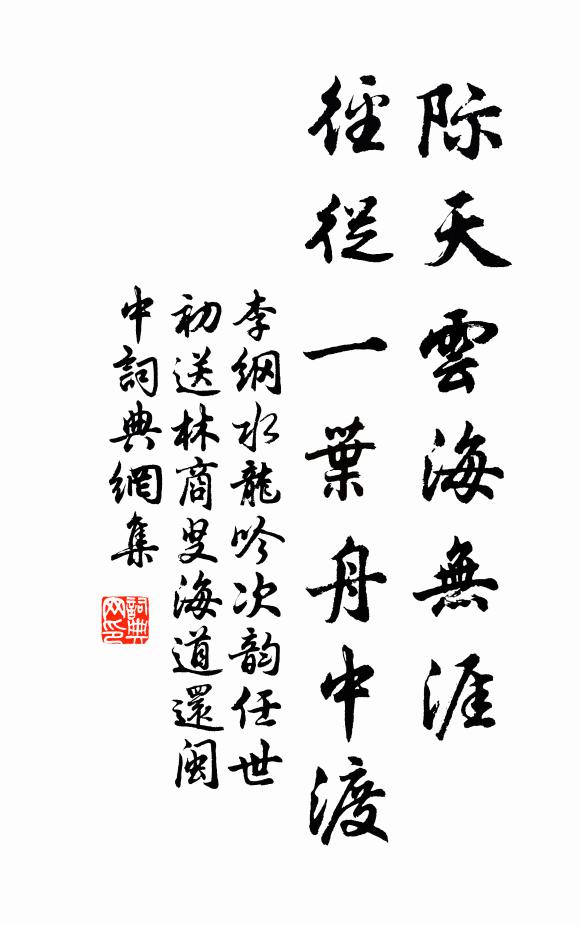 际天雲海無涯
徑從一葉舟中渡
李纲水龍吟次韵任世
初送林商叟海道還闽
中詞典網集
詞典
网印